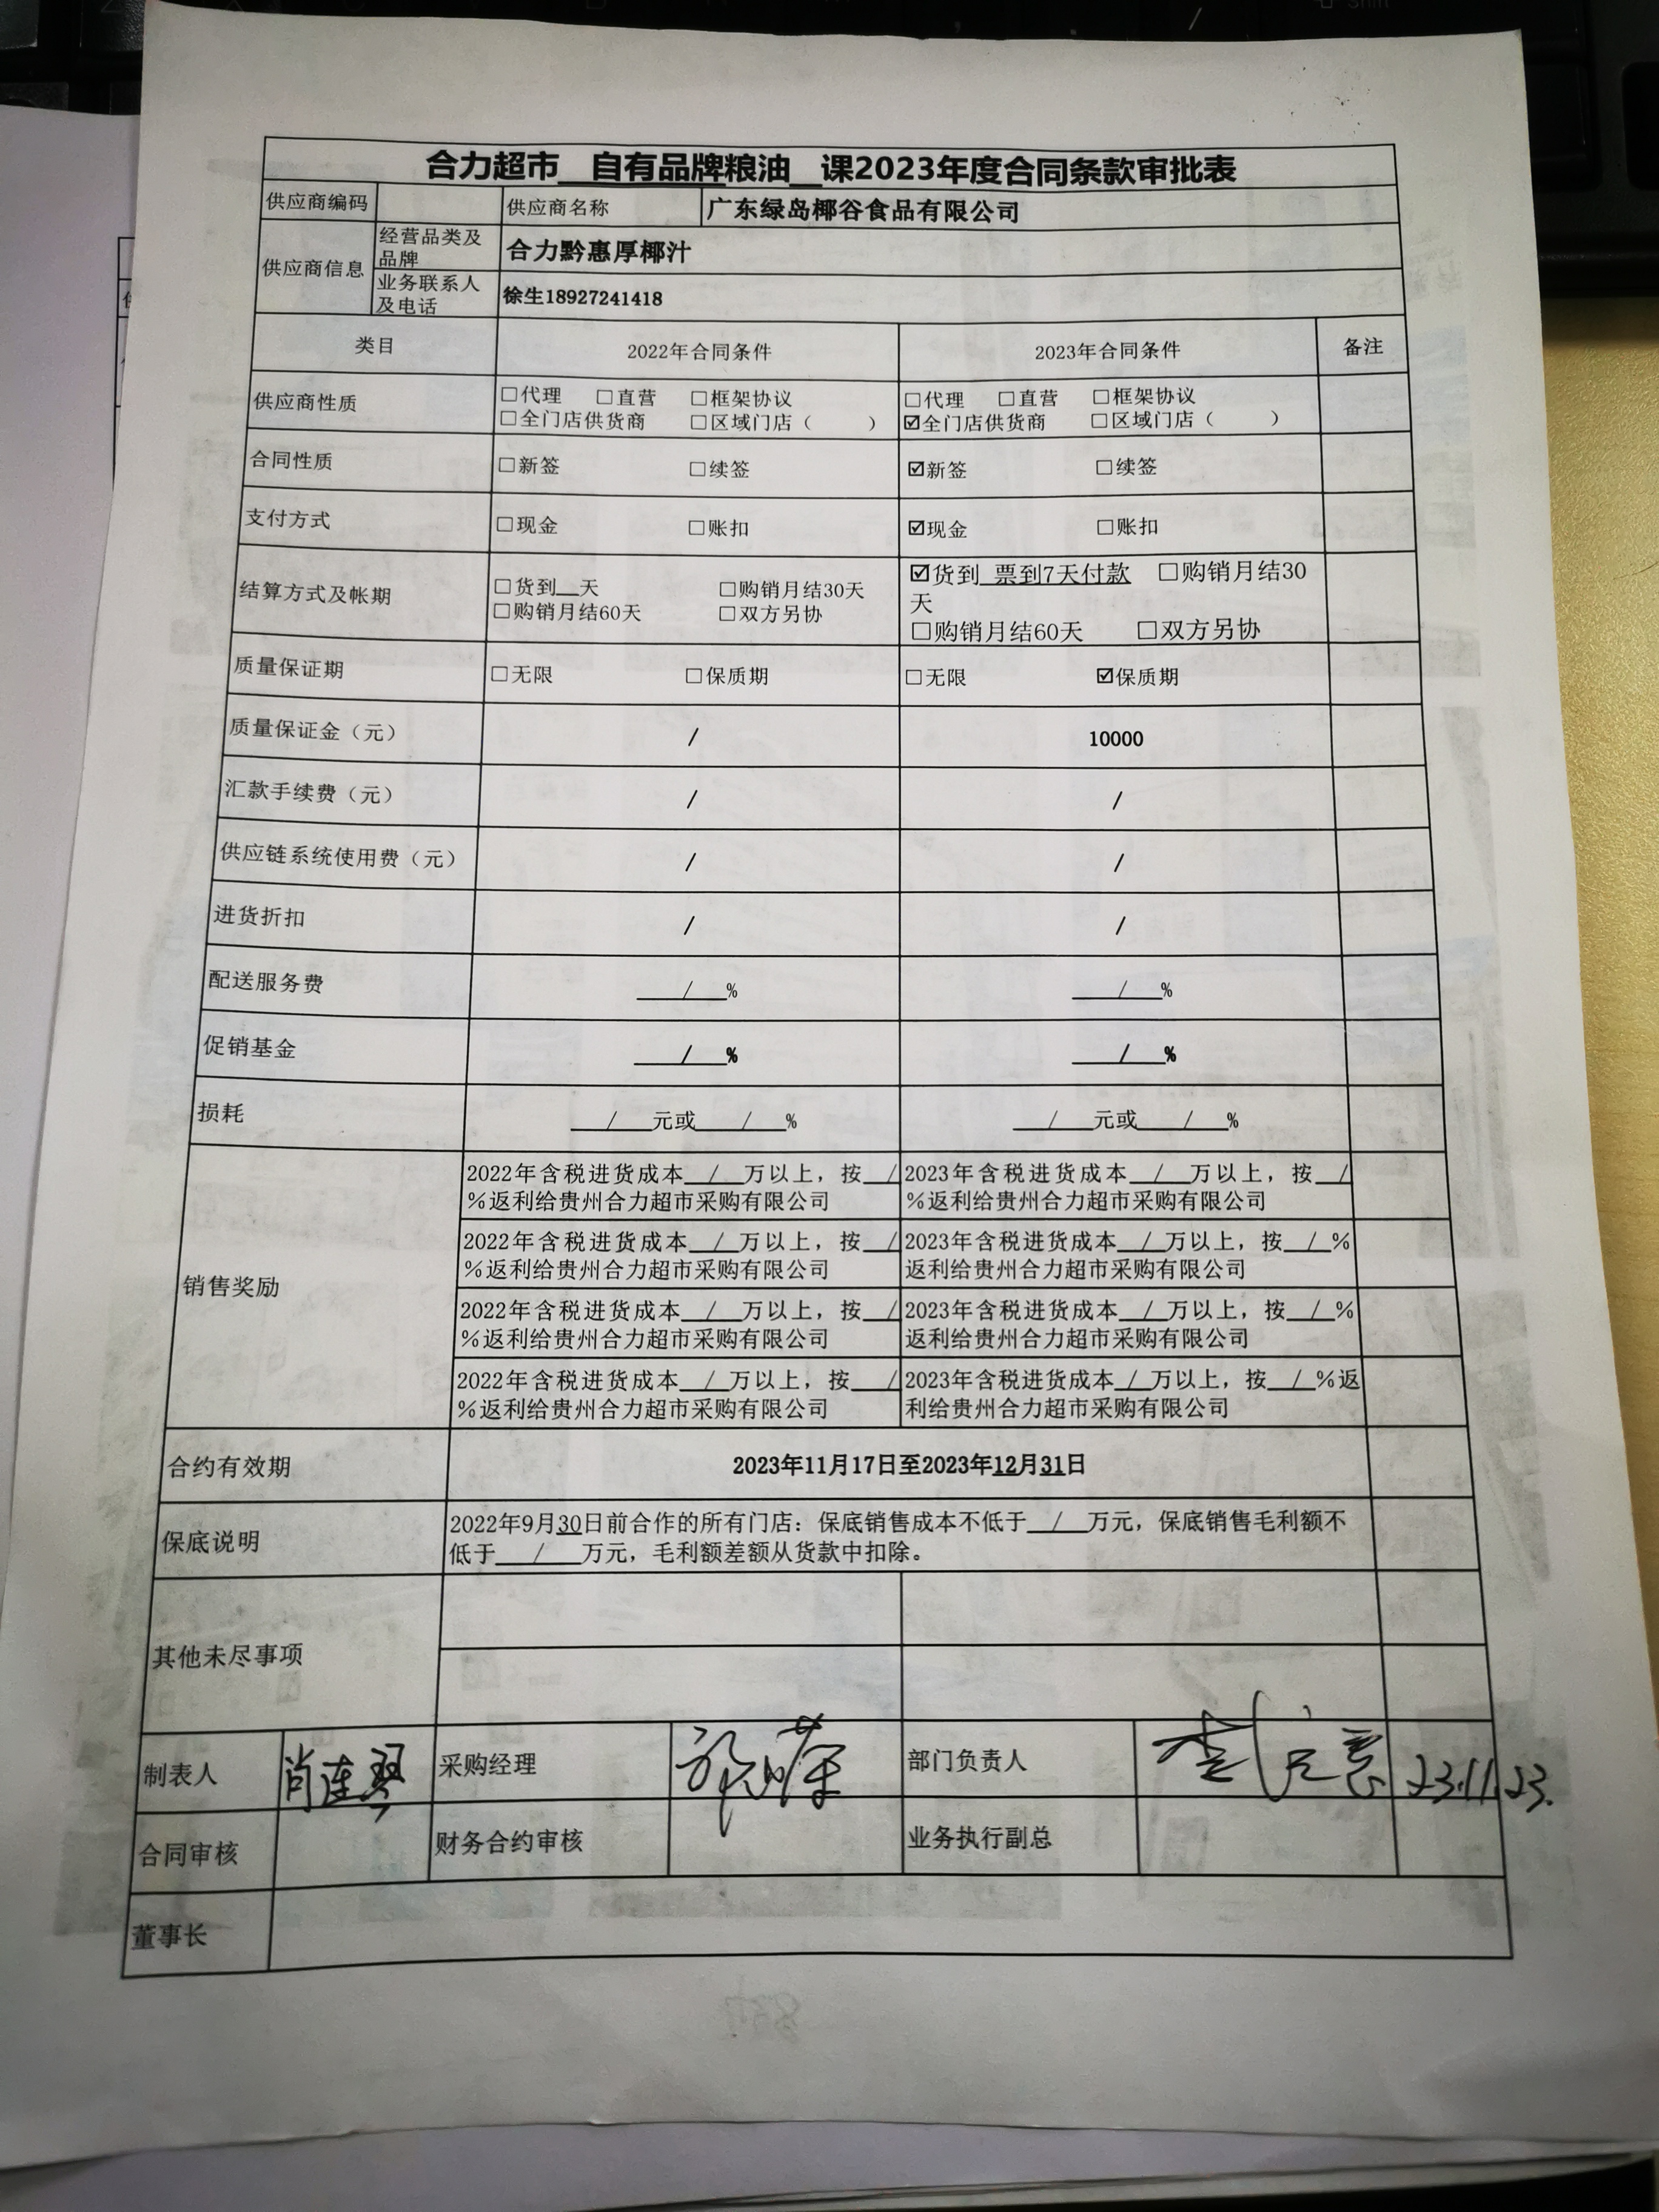 合力超市__自有品牌粮油__课2023年度合同条款审批表
供应商编码 供应商名称 广东绿岛椰谷食品有限公司
供应商信息
经营品类及
品牌
合力黔惠厚椰汁
业务联系人
及电话
徐生18927241418
类目 2022年合同条件 2023年合同条件 备注
供应商性质
□代理 □直营 □框架协议
□全门店供货商 □区域门店（ ）
□代理 □直营 □框架协议
☑全门店供货商 □区域门店（ ）
合同性质 □新签 □续签 ☑新签 □续签
支付方式 □现金 □账扣 ☑现金 □账扣
结算方式及帐期
□货到__天 □购销月结30天
□购销月结60天 □双方另协
☑货到_票到7天付款 □购销月结30
天
□购销月结60天 □双方另协
质量保证期 □无限 □保质期 □无限 ☑保质期
质量保证金（元） / 10000
汇款手续费（元） / /
供应链系统使用费（元） / /
进货折扣 / /
配送服务费 ___/___% ___/___%
促销基金 ___/___% ___/___%
损耗 ___/___元或___/___% ___/___元或___/___%
销售奖励
2022年含税进货成本__/__万以上，按__/
%返利给贵州合力超市采购有限公司
2023年含税进货成本__/__万以上，按__/
%返利给贵州合力超市采购有限公司
2022年含税进货成本__/__万以上，按__/
%返利给贵州合力超市采购有限公司
2023年含税进货成本__/__万以上，按__/_%
返利给贵州合力超市采购有限公司
2022年含税进货成本__/__万以上，按__/
%返利给贵州合力超市采购有限公司
2023年含税进货成本__/__万以上，按__/_%
返利给贵州合力超市采购有限公司
2022年含税进货成本__/__万以上，按__/
%返利给贵州合力超市采购有限公司
2023年含税进货成本_/__万以上，按__/_%返
利给贵州合力超市采购有限公司
合约有效期 2023年11月17日至2023年12月31日
保底说明
2022年9月30日前合作的所有门店：保底销售成本不低于__/__万元，保底销售毛利额不
低于___/___万元，毛利额差额从货款中扣除。
其他未尽事项
制表人 肖连琴 采购经理 部门负责人 23.11.23.
合同审核 财务合约审核 业务执行副总
董事长